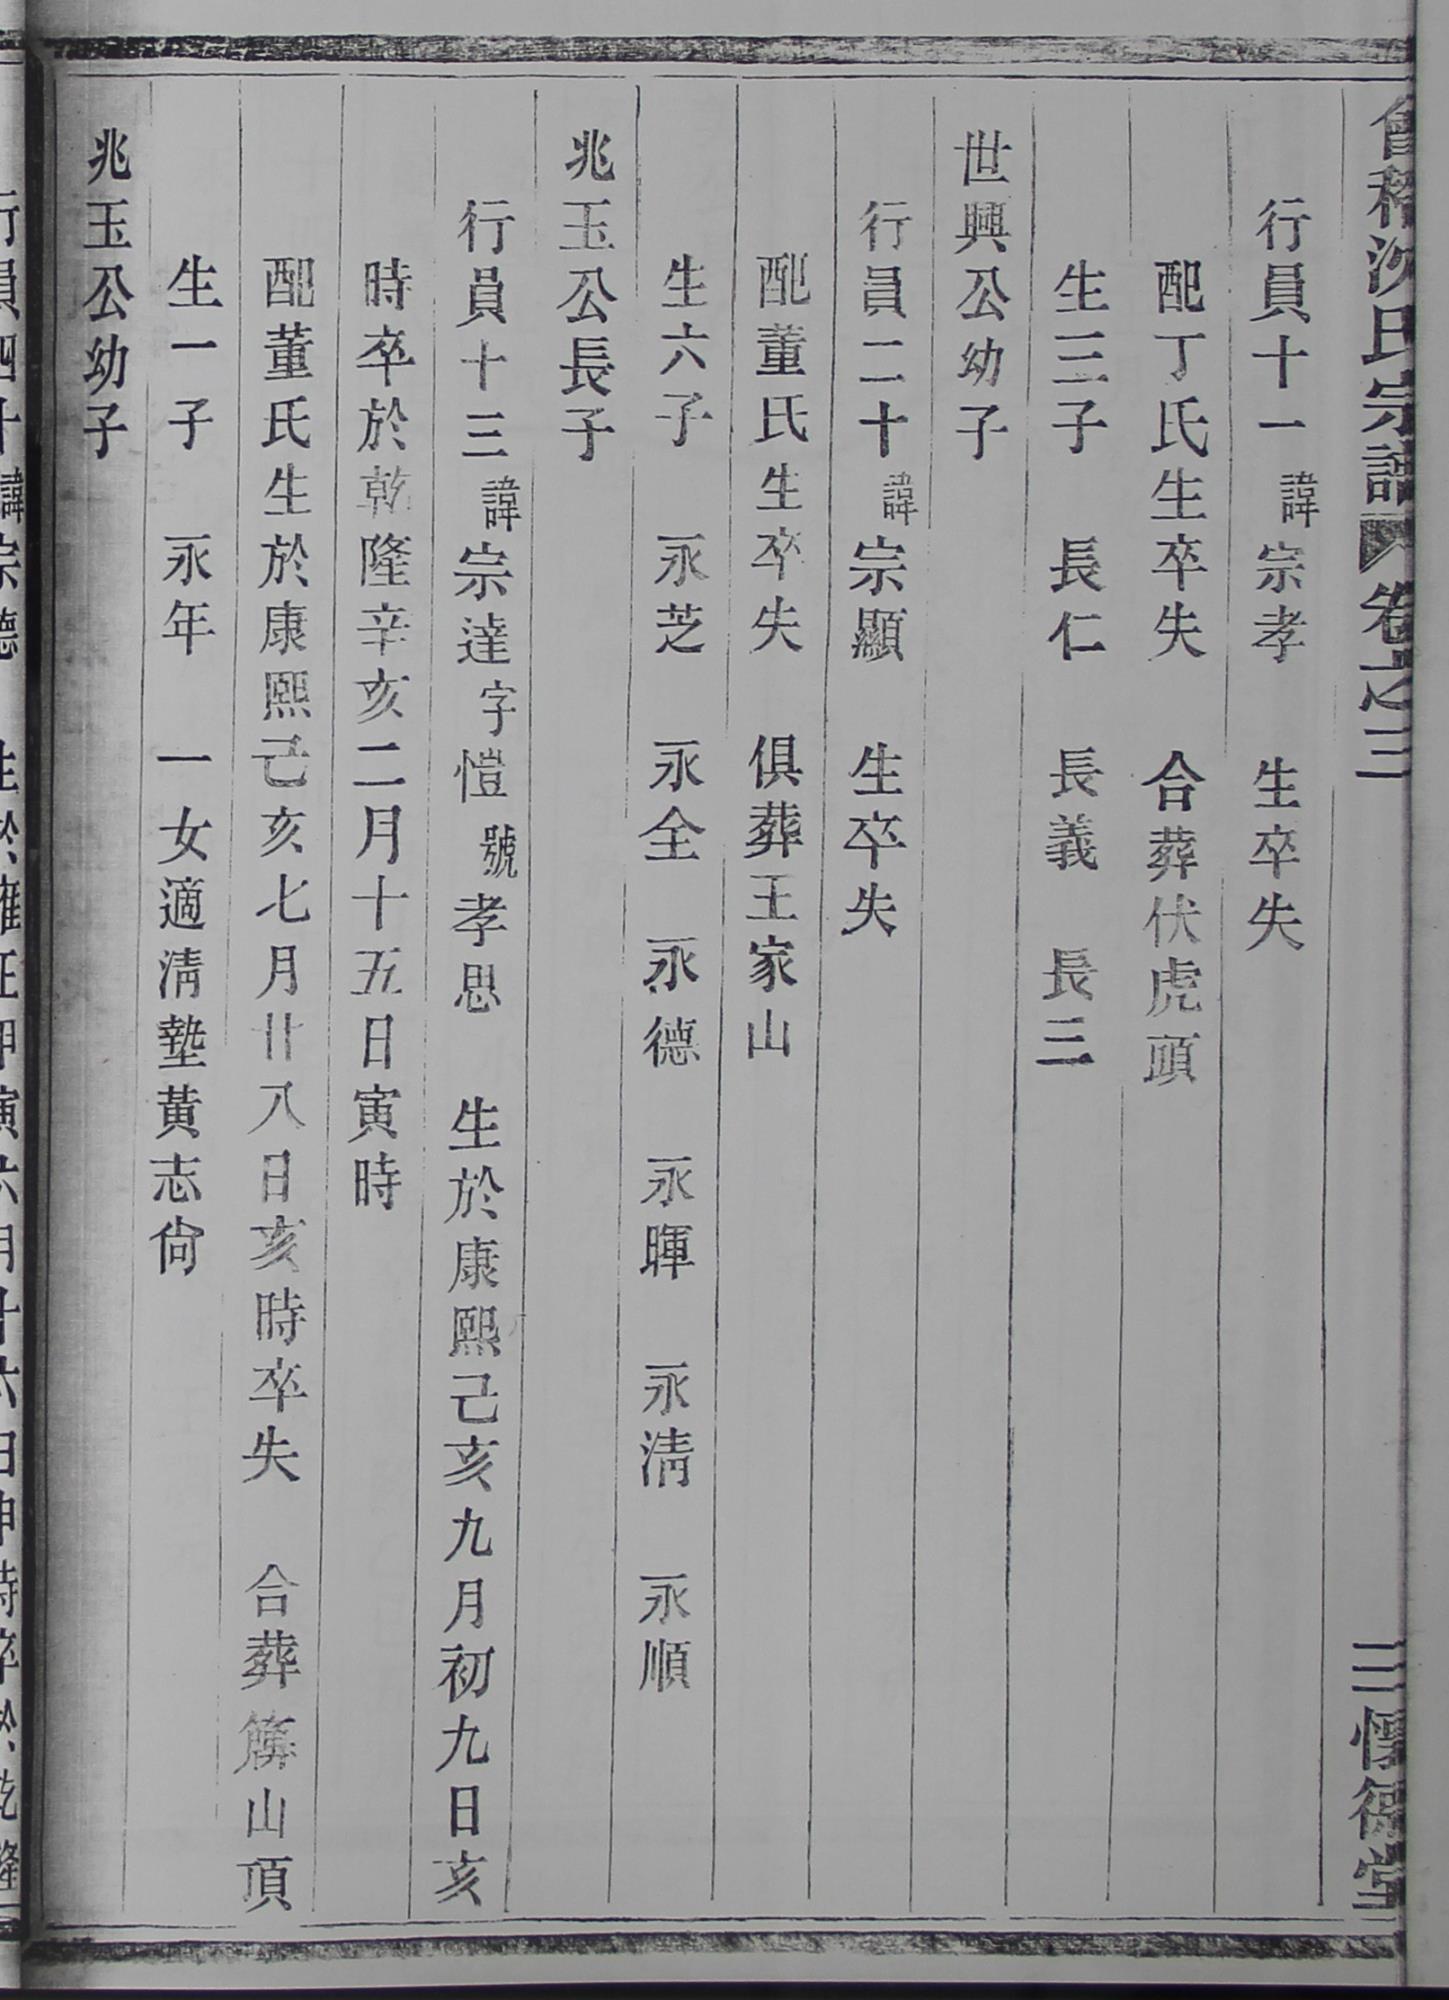 會稽沈氏宗譜 卷之三 三 懷德堂
行員十一諱宗孝 生卒失
配丁氏生卒失 合葬伏虎頭
生三子 長仁 長義 長三
世興公幼子
行員二十諱宗顯 生卒失
配董氏生卒失 俱葬王家山
生六子 永芝 永全 永德 永暉 永清 永順
兆玉公長子
行員十三諱宗達字愷號孝思 生於康熙己亥九月初九日亥
時卒於乾隆辛亥二月十五日寅時
配董氏生於康熙己亥七月廿八日亥時卒失 合葬山頂
生一子 永年 一女適清墊黃志尙
兆玉公幼子
行員四十諱宗德 生於雍正甲寅六月十六日申時卒於乾隆